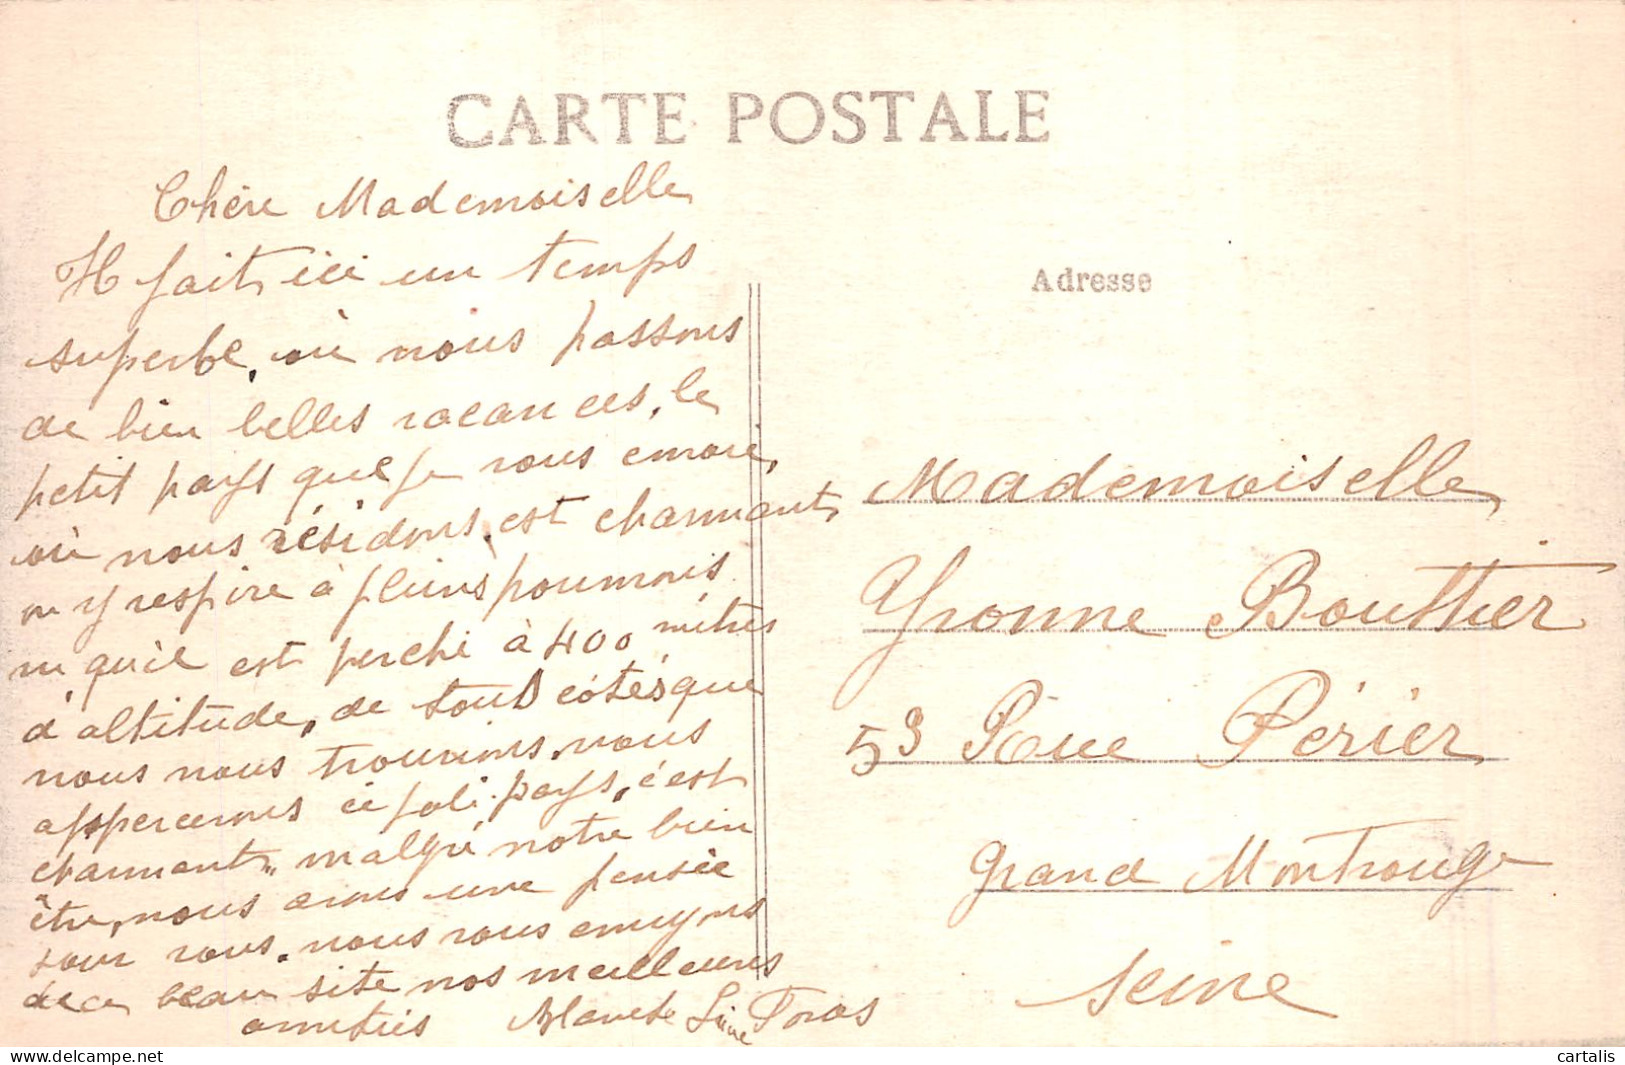 CARTE POSTALE
Chère Mademoiselle
Il fait ici un temps
superbe, où nous passons
de bien belles vacances, le
petit pays que je vous envoie,
où nous résidons, est charmant,
on y respire à pleins poumons
vu qu'il est perché à 400 mètres
d'altitude, de tous côtés que
nous nous trouvions, nous
appercevons ce joli pays, c'est
charmant, malgré notre bien
être, nous avons une pensée
pour vous, nous vous envoyons
de ce beau site nos meilleures
amitiés Blanche
Adresse
Mademoiselle
Yvonne Bouthier
53 Rue Périer
Grand Montrouge
Seine
cartalis